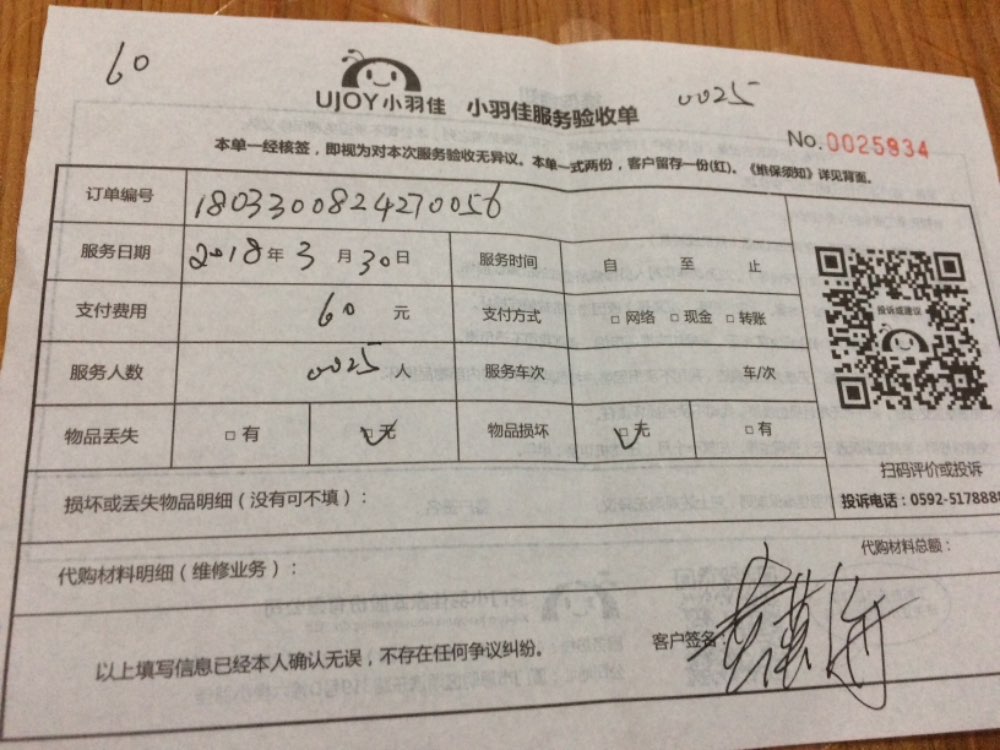 60
0025
UJOY小羽佳 小羽佳服务验收单
No.0025934
本单一经核签，即视为对本次服务验收无异议。本单一式两份，客户留存一份(红)。《维保须知》详见背面。
订单编号 1803300824270056
服务日期 2018年3月30日 服务时间 自 至 止
支付费用 60 元 支付方式 □网络 □现金 □转账
服务人数 0025 服务车次 车/次
物品丢失 □有 □无 物品损坏 □无 □有
投诉或建议
扫码评价或投诉
投诉电话：0592-5178888
损坏或丢失物品明细（没有可不填）：
代购材料明细（维修业务）：
代购材料总额：
以上填写信息已经本人确认无误，不存在任何争议纠纷。
客户签名：